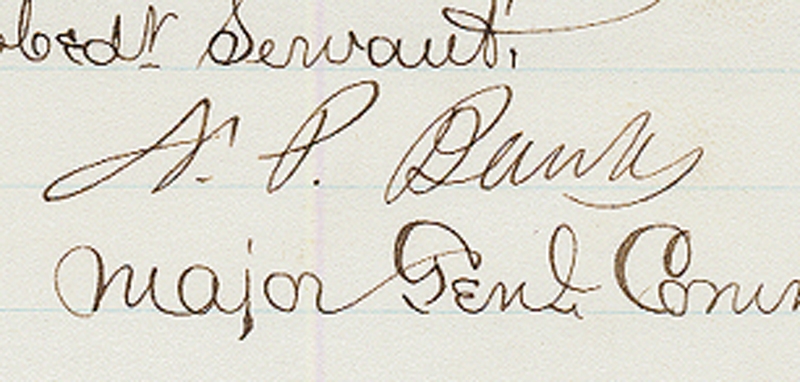 obedt Servant,
N. P. Banks
Major Genl Com